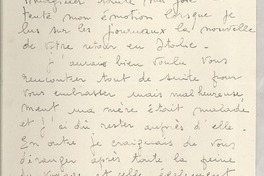 tenté mon émotion lorsque je
lus sur les journaux la nouvelle
de votre retour en Italie.
J'aurais bien voulu vous
rencontrer tout de suite pour
vous embrasser mais malheureuse
ment ma mère était malade
et j'ai dû rester auprès d'elle.
En outre je craignais de vous
déranger après toute la peine
du voyage et